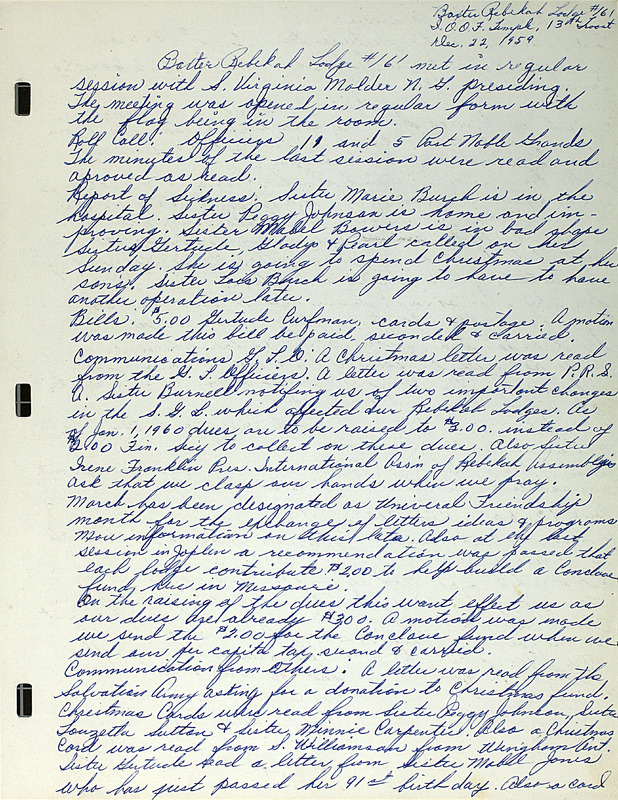 Baxter Rebekah Lodge #161
I.O.O.F. Temple, 13th & Troost
Dec. 22, 1959
Baxter Rebekah Lodge #161 met in regular
session with S. Virginia Molder N. G. presiding.
The meeting was opened in regular form with
the flag being in the room.
Roll Call: Officers 11 and 5 Past Noble Grands
The minutes of the last session were read and
aproved as read.
Report of Sickness: Sister Marie Burch is in the
hospital. Sister Peggy Johnson is home and im-
proving. Sister Mabel Bowers is in bad shape
Sisters Gertrude, Gladys & Pearl called on her
Sunday. She is going to spend Christmas at her
sons. Sister Burch is going to have to have
another operation later.
Bills: $5.00 Gertrude Curfman, cards & postage. A motion
was made this bill be paid, second & carried.
Communications G. L. O: A Christmas letter was read
from the G. L. Officers. A letter was read from P.R.S.
A. Sister Burnell notifying us of two important changes
in the S. G. L. which affected our Rebekah Lodges. As
of Jan. 1, 1960 dues are to be raised to $3.00. instead of
$2.00 Fin. Secy to collect on these dues. Also Sister
Irene Franklin Pres. International Assn of Rebekah Assemblys
ask that we clasp our hands when we pray.
March has been designated as Univeral Friendship
month for the exchange of letters ideas & programs
More information on this late. Also at the last
session in Joplin a recommendation was passed that
each lodge contribute $2.00 to help build a Conclave
fund here in Missouri.
On the raising of the dues this want effect us as
our dues are already $3.00. A motion was made
we send the $2.00 for the Conclave fund when we
send our per capita tax, second & carried.
Communication from Others: A letter was read from the
Salvation Army asking for a donation to Christmas fund.
Christmas Cards were read from Sister Peggy Johnson, Sister
Louzetta Sutton & Sister Minnie Carpenter. Also a Christmas
Card was read from S. Williamson from Wingham Ont.
Sister Gertrude read a letter from Sister Jones
who has just passed her 91st birthday. Also a card